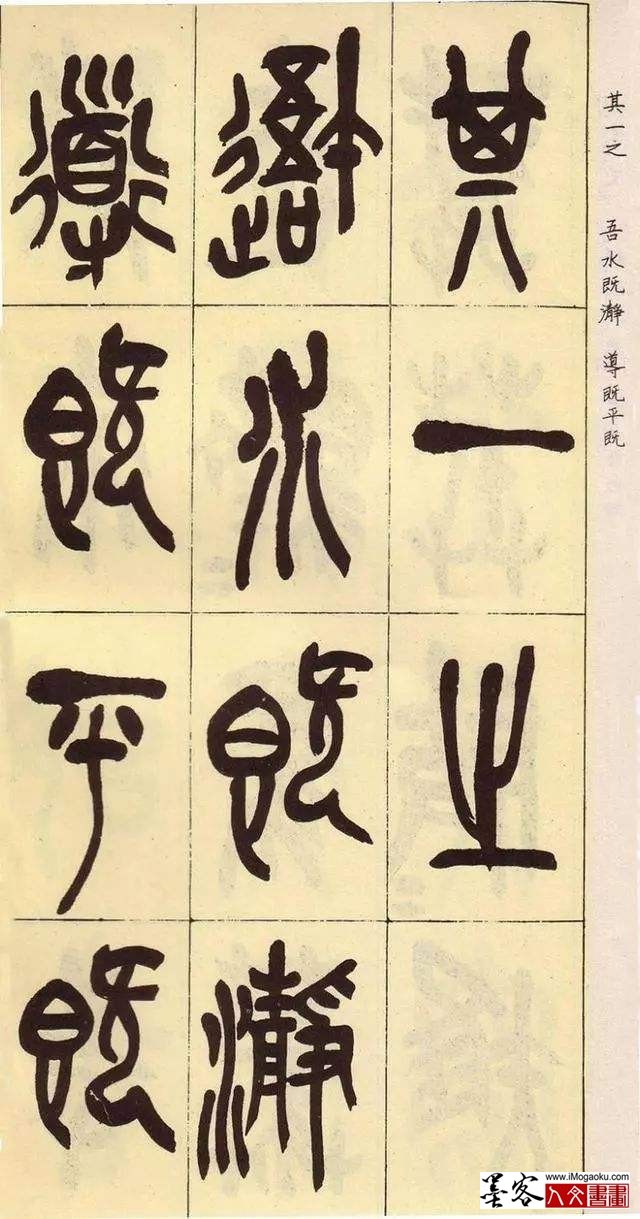 其一之
吾水既瀞
導既平既
其一之 吾水既瀞 導既平既
墨客
www.iMogaoku.com
人文書畫